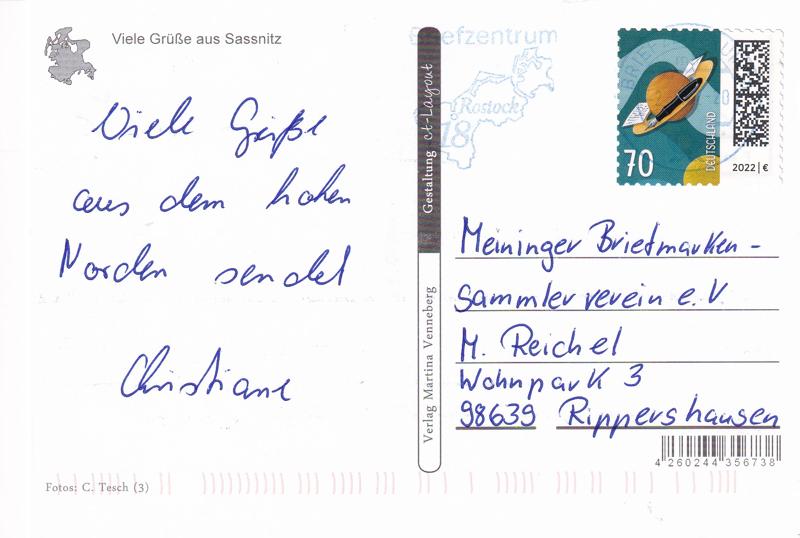 Viele Grüße aus Sassnitz
Viele Grüße
aus dem hohen
Norden sendet
Christiane
Fotos: C. Tesch (3)
Gestaltung ct-Layout
Verlag Martina Venneberg
Briefzentrum
Rostock
18
70
DEUTSCHLAND
2022 | €
Meininger Briefmarken-
Sammlerverein e.V.
M. Reichel
Wohnpark 3
98639 Rippershausen
4 260244 356738